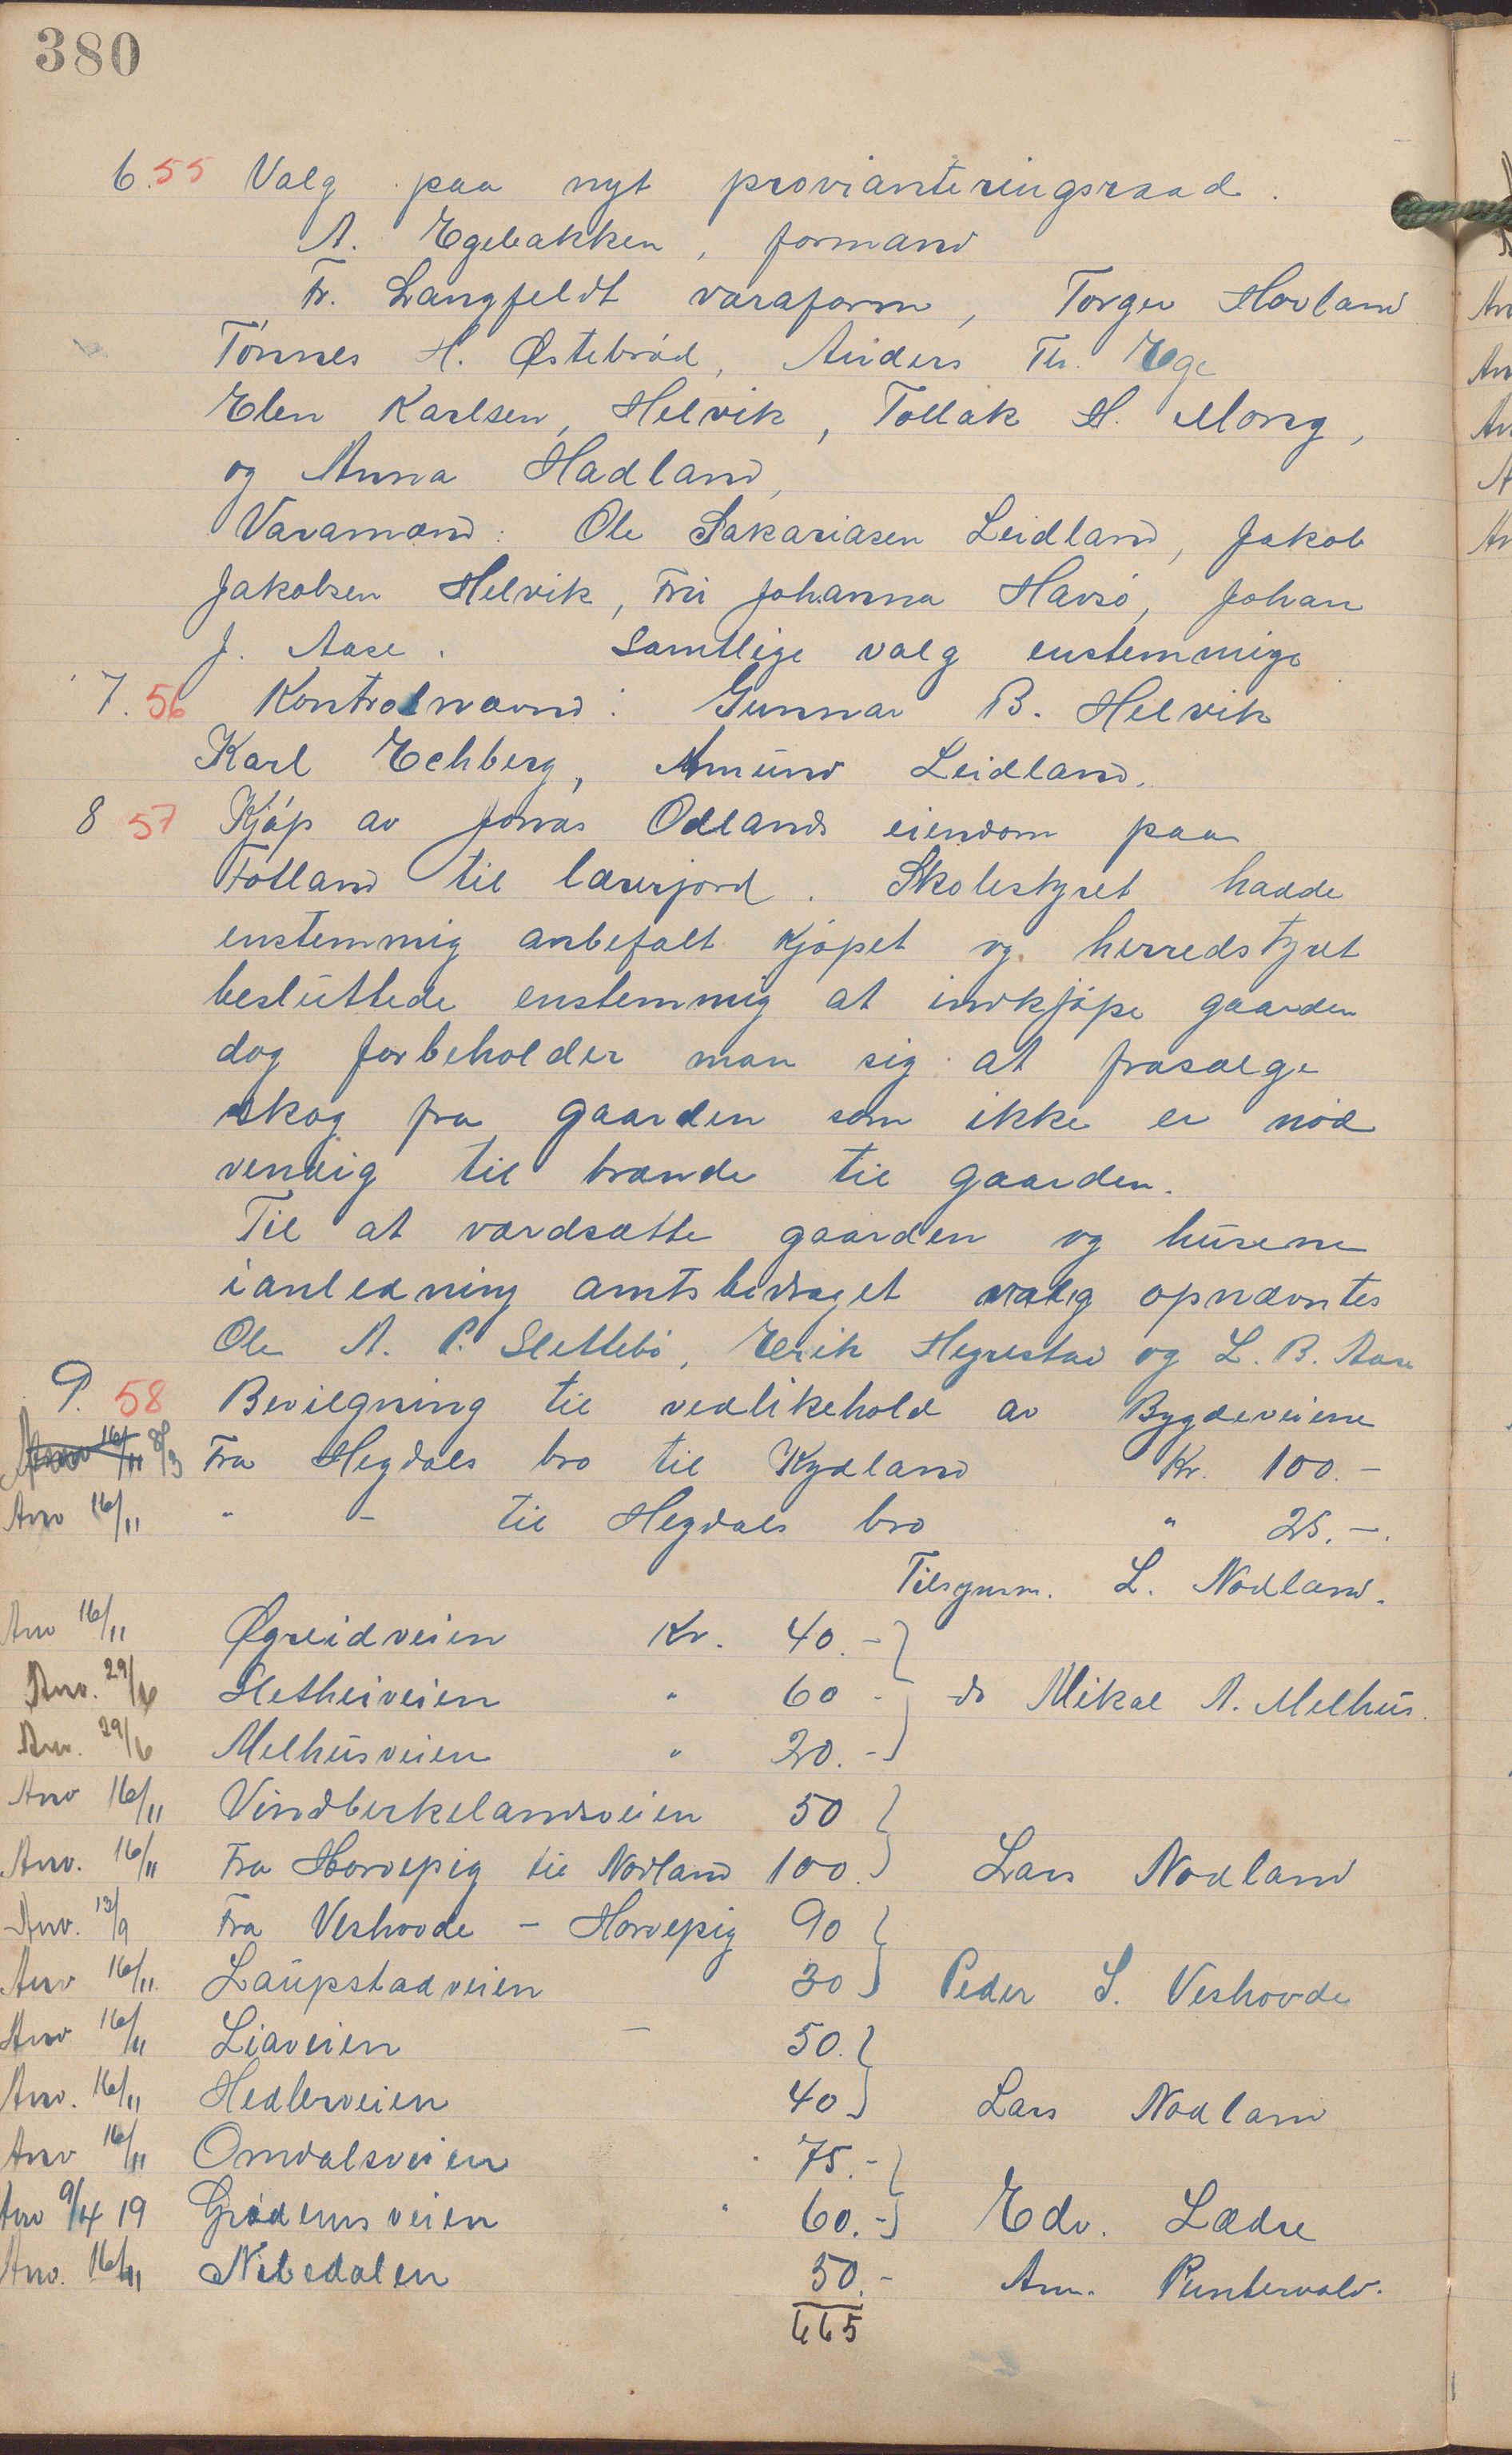 380
6. 55 Valg paa nyt provianteringsraad.
A. Egebakken, formand
Fr. Langfeldt varaform, Torger Hovland
Tønnes H. Østebrød, Anders Th. Ege
Elen Karlsen, Helvik, Tollak H. Mong,
og Anna Hadland,
Varamænd: Ole Sakariasen Leidland, Jakob
Jakobsen Helvik, Fru Johanna Havsø, Johan
J. Aase. Samtlige valg enstemmige
7. 56 Kontrolnævnd: Gunnar B. Helvik
Karl Echberg, Amund Leidland.
8 57 Kjøp av Jonas Ødlands eiendom paa
Fotland til lærerjord. Skolestyret hadde
enstemmig anbefalt kjøpet og herredstyret
besluttede enstemmig at indkjøpe gaarden
dog forbeholder man sig at frasælge
skog fra gaarden som ikke er nød
vendig til brænde til gaarden.
Til at værdsætte gaarden og husene
i anledning amtsbidraget opnævntes
Ole A. P. Slettebø, Erik Hegrestad og L. B. Aase
9. 58 Bevilgning til vedlikehold av Bygdeveiene
Anv 16/11 8/3 Fra Hegdals bro til Kydland Kr. 100.-
Anv 16/11 " - til Hegdals bro " 25.-.
Tilsynsm. L. Nodland.
Anv 16/11 Øgreidveien Kr. 40.-
Anv. 29/6 Sletheiveien " 60 - do Mikal A. Melhus.
Anv. 29/6 Melhusveien " 20.-
Anv 16/11 Vindberkelandsveien 50
Anv. 16/11 Fra Horvepig til Nodland 100. Lars Nodland
Anv. 13/9 Fra Veshovde - Horvepig 90
Anv 16/11. Laupstadveien 30 Peder S. Veshovde
Anv 16/11 Liaveien - 50.
Anv. 16/11 Hedlerveien 40 Lars Nodland
Anv 16/11 Omdalsveien 75.-
Anv 9/4 19 Grødemsveien " 60.- Edv. Lædre
Anv. 16/11 Nibedalen 50.- Ann. Puntervold.
665